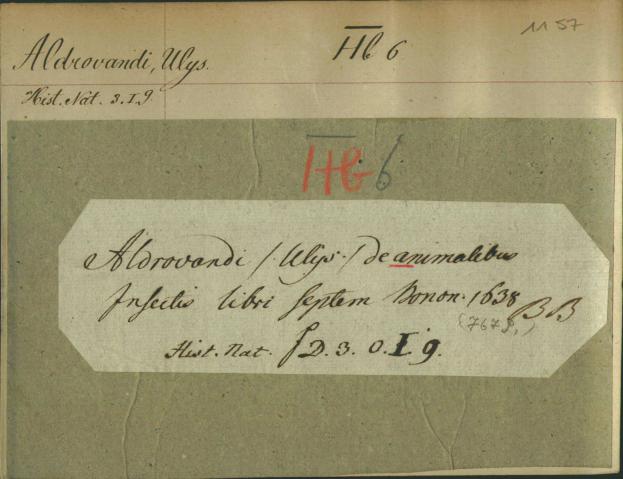 1157
Aldrovandi, Ulys. Hb 6
Hist. Nat. 3. I. 9.
Hb 6
Aldrovandi /: Ulys: / de animalibus
Insectis libri septem Bonon. 1638 BB
(767 S.)
Hist. Nat. f D. 3. O. I. 9.